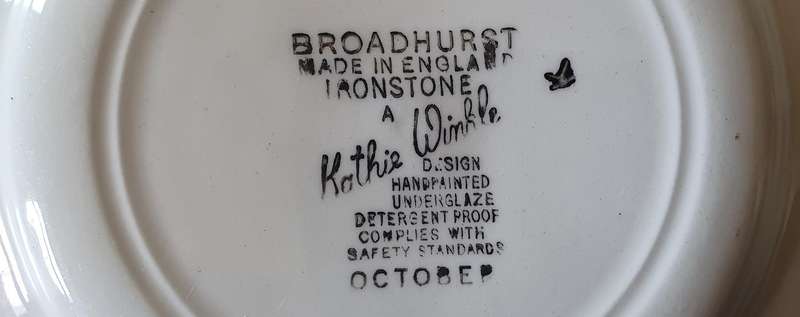 BROADHURST
MADE IN ENGLAND
IRONSTONE
A
Kathie Winkle
DESIGN
HANDPAINTED
UNDERGLAZE
DETERGENT PROOF
COMPLIES WITH
SAFETY STANDARDS
OCTOBER